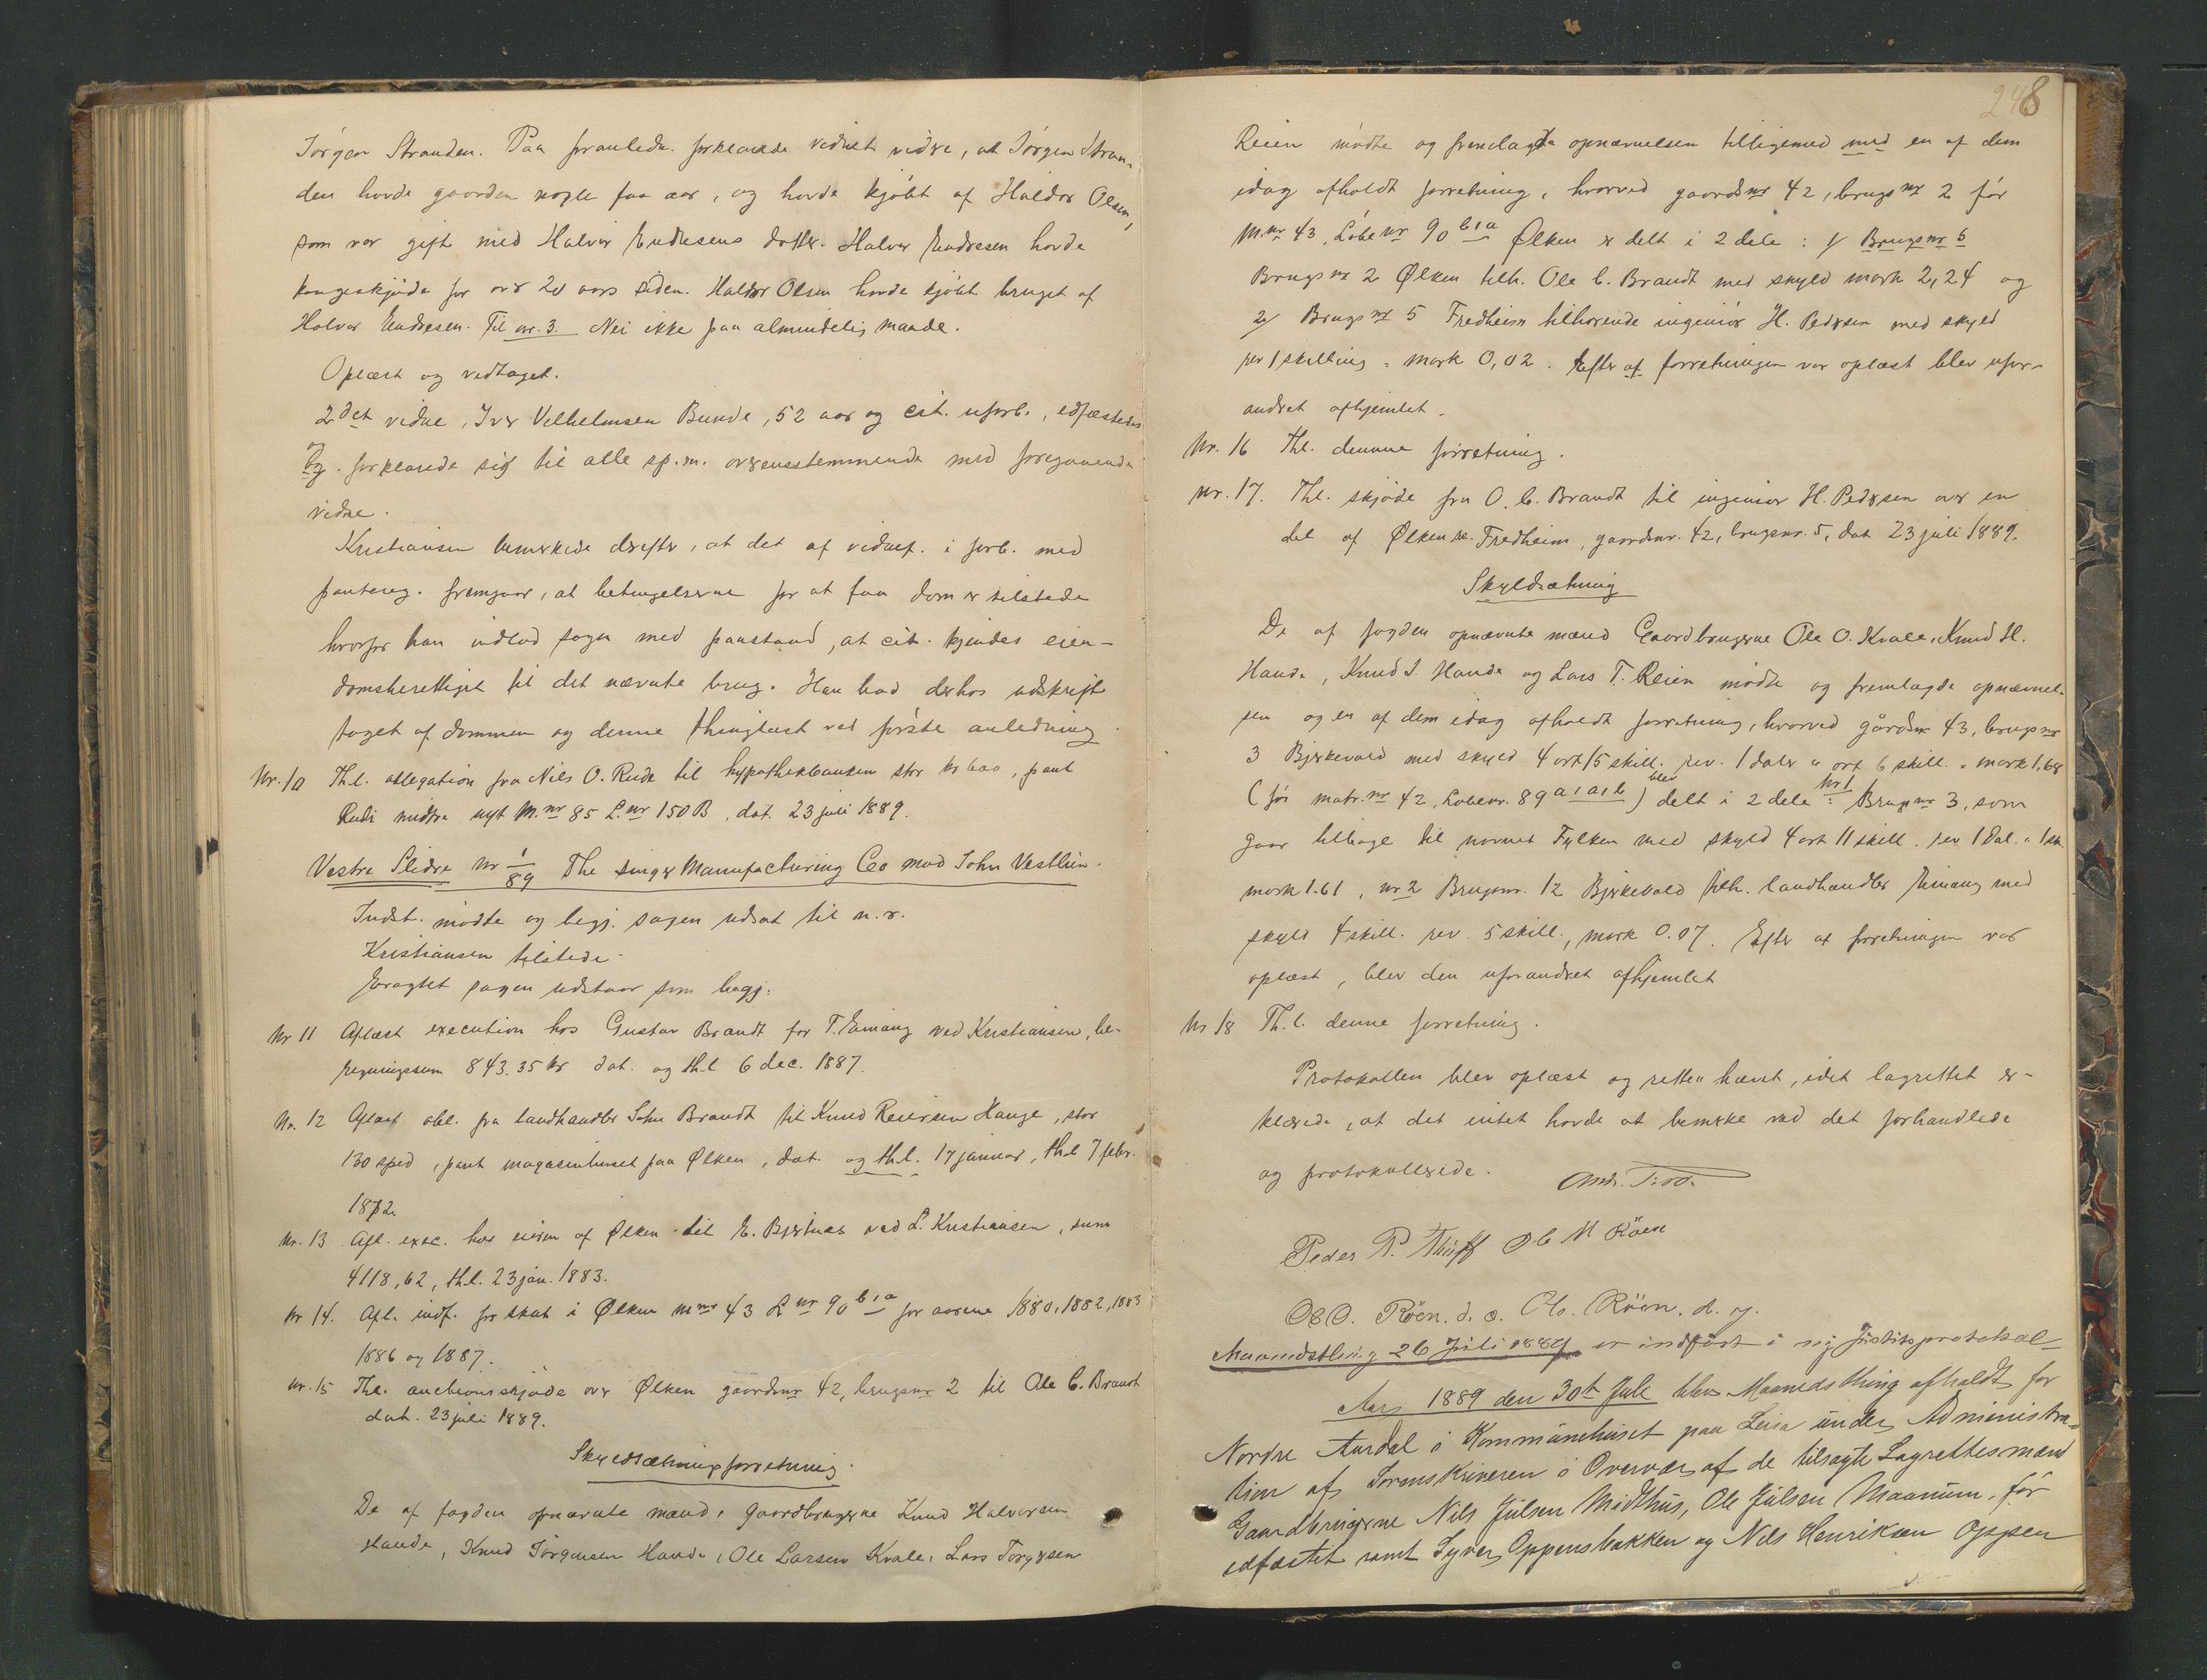 Jørgen Stranden. Paa foranledn. forklarede vidnet vidre, at Jørgen Stran-
den havde gaarden nogle faa aar, og havde kjøbt af Haldor Olsen,
som var gift med Halvor Endresens datter. Halvor Endresen havde
kongeskjøde for over 20 aars siden. Haldor Olsen havde kjøbt bruget af
Halvor Endresen. Til nr. 3. Nei ikke paa almindelig maade.
Oplæst og vedtaget.
2det vidne, Iver Vilhelmsen Bunde, 52 aar og cit. uforb., edfæstedes
og forklarede sig til alle sp.m. overensstemmende med foregaaende
vidne.
Kristiansen bemærkede derefter, at det af vidnef. i forb. med
pantereg. fremgaar, at betingelserne for at faa dom er tilstede
hvorfor han indlod sagen med paastand, at cit. kjendes eien-
domsberettiget til det nævnte brug. Han bad derhos udskrift
taget af dommen og denne thinglæst ved første anledning
Nr. 10 Th.l. obligation fra Nils O. Rude til hypothekbanken stor kr 600, pant
Rudi nedtre nyt M.nr 85 L.nr 150 B, dat. 23 juli 1889.
Vestre Slidre nr 1/89 The Singer Manufacturing Co mod John Vestlien.
Indst. mødte og begj. sagen udsat til n.r.
Kristiansen tilstede.
Eragtet sagen udstaar som begj.
Nr 11 Aflæst execution hos Gustav Brandt for T. Eimang ved Kristiansen, be-
regningssum 843.35 kr dat. og th.l 6 dec. 1887.
Nr. 12 Aflæst obl. fra landhandler John Brandt til Knud Reiersen Hauge, stor
130 spd, pant magasinhuset paa Ølken, dat. og th.l. 17 januar, th.l 7 febr.
1872.
Nr. 13 Afl. exec. hos eieren af Ølken til E. Bjertnæs ved L. Kristiansen, sum
4118,62, th.l. 23 jan. 1883.
Nr 14. Afl. indf. for skat i Ølken m.nr 43 L nr 90 b,a for aarene 1880, 1882, 1883
1886 og 1887.
Nr. 15 Th.l. auctionsskjøde over Ølken gaardsnr 42, brugsnr 2 til Ole C. Brandt
dat. 23 juli 1889.
Skyldsætningsforretning.
De af fogden opnævnte mænd, gaardbrugerne Knud Halvorsen
Hande, Knud Jørgensen Hande, Ole Larsen Kvale, Lars Torgersen
248
Reien mødte og fremlagde opnævnelsen tilligemed med en af dem
idag afholdt forretning, hvorved gaardsnr 42, brugsnr 2 før
M.nr 43, Løbe nr 90 b,a Ølken er delt i 2 dele: 1/ Brugsnr 5
Brugsnr 2 Ølken tilh. Ole C. Brandt med skyld mark 2,24 og
2/ Brugsnr 5 Fredheim tilhørende ingeniør H. Pedersen med skyld
rev 1 skilling = mark 0,02. Efter at forretningen var oplæst blev ufor-
andret afhjemlet.
Nr. 16 Th.l. denne forretning.
Nr. 17. Th.l. skjøde fra O. C. Brandt til ingeniør H. Pedersen over en
del af Ølken se. Fredheim, gaardsnr. 42, brugsnr. 5, dat 23 juli 1889.
Skyldsætning
De af fogden opnævnte mænd Gaardbrugerne Ole O. Kvale, Knud H.
Hande, Knud J. Hande og Lars T. Reien mødte og fremlagde opnævnel-
sen og en af dem idag afholdt forretning, hvorved gårdsnr 43, brugsnr
3 Bjerkevold med skyld 4 ort 15 skill. rev. 1 daler 0 ort 6 skill. = mark 1.68
(før matr. nr 42, Løbenr. 89 a,a,b) blev delt i 2 dele: Nr 1 Brugsnr 3, som
gaar tilbage til navnet Fylken med skyld 4 ort 11 skill. rev 1 dal. 1 sk.
mark 1.61, nr 2 Brugsnr. 12 Bjerkevold tilh. landhandler Eimang med
skyld 4 skill. rev. 5 skill., mark 0.07. Efter at forretningen var
oplæst, blev den uforandret afhjemlet
Nr 18 Th.l. denne forretning.
Protokollen blev oplæst og retten hævet, idet lagrettet er-
klærede, at det intet havde at bemærke ved det forhandlede
og protokollerede.
Peder P. Ole M Röen
Ole O. Röen. d. o. Ole. Röen. d. y.
Maanedsthing 26 Juli 1889 er indført i ny Justitsprotokol-
Aar 1889 den 30te Juli blev Maanedsthing afholdt for
Nordre Aurdal i Kommunehuset paa Leira under Administra-
tion af Sorenskriveren i Overvær af de tilsagte Lagrettesmænd
Gaardbrugerne Nils Julsen Midthus, Ole Julsen Maanum, før
edfæstet samt Syver Oppensbakken og Nils Henriksen Oppen